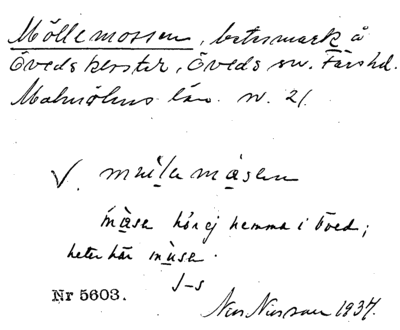 Möllemossen, betesmark å
Öveds kloster, Öveds sn. Färs hd.
Malmöhus län. n. 21.
V. mmilemåsen
måse hör ej hemma i Öved;
heter här muse.
J-s
Nr 5603.
Nils Nilsson 1937.